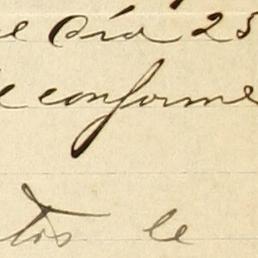 e Día 25
e conforme
tos le